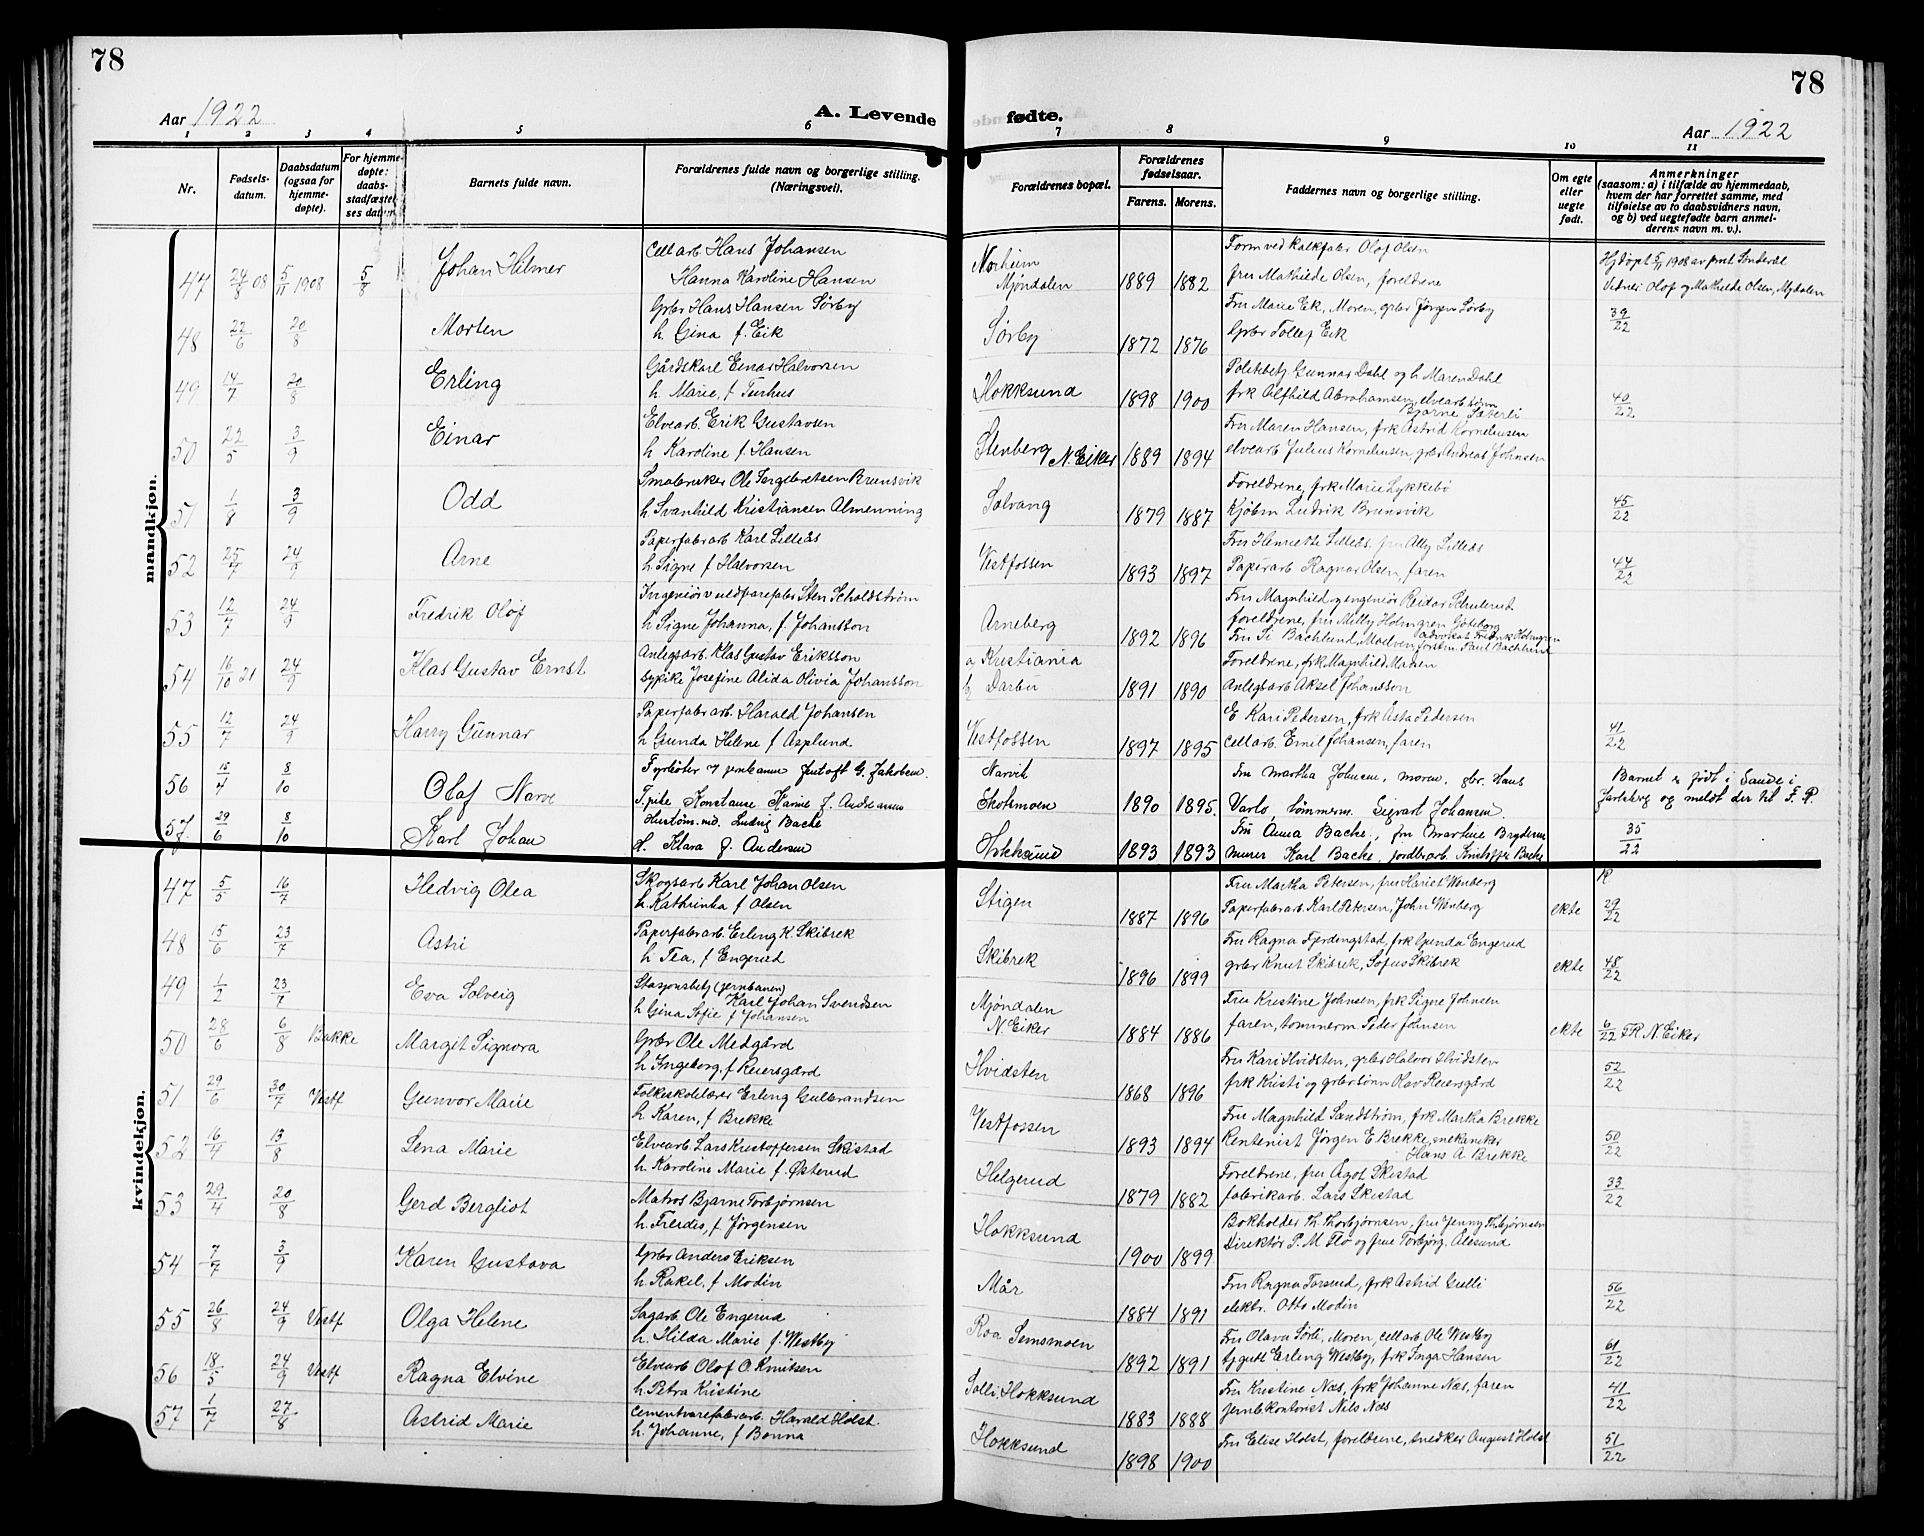 78
Aar 1922
A. Levende
1 2 3 4 5 6
Nr.
Fødsels-
datum.
Daabsdatum
(ogsaa for
hjemme-
døpte).
For hjemme-
døpte:
daabs-
stadfæstel-
ses datum.
Barnets fulde navn.
Forældrenes fulde navn og borgerlige stilling.
(Næringsvei).
mandkjøn.
47 24/8 08 5/11 1908 5/8 Johan Hilmer Cellarb. Hans Johansen
Hanna Karoline Hansen
48 22/6 20/8 Morten Gbr Hans Hansen Sørby
h. Gina f. Eik
49 14/7 20/8 Erling Gårdskarl Einar Halvorsen
h. Marie, f
50 22/5 3/9 Einar Elvearb. Erik Gustavsen
h. Karoline f. Hansen
51 1/8 3/9 Odd Smabruker Ole Ingebretsen Brunsvik
h. Svanhild Kristiansen Almenning
52 25/7 24/9 Arne Papirfabrarb Karl Lilleås
h. Signe f Halvorsen
53 12/7 24/9 Fredrik Olof Ingeniør Sten
h Signe Johanna, f. Johansson
54 16/10 21 24/9 Klas Gustav Ernst Anlegsarb. Klas Gustav Eriksson
sypike Josefine Alida Olivia Johansson
55 12/7 24/9 Harry Gunnar Paperfabrarb. Harald Johansen
h Gunda Helene f Asplund
56 15/4 8/10 Olaf Narve Fyrbøter v jernbanen Jentoft G. Jakobsen.
T.pike Konstanse Karine f. Andreassen
57. 29/6 8/10 Karl Johan Ludvig Bache
h. Klara f. Andersen
kvindekjøn.
47 5/5 16/7 Hedvig Olea Skogsarb Karl Johan Olsen
h. Kathrinka f Olsen
48 15/6 23/7 Astri Paperfabrarb. Erling K. Skibrek
h Tea, f Engerud
49 1/2 23/7 Eva Solveig Stasjonsbetj (jernbanen)
Karl Johan Svendsen
h Gina Sofie f Johansen
50 28/6 6/8 Bakke Margit Signora Gbr Ole Medgård
h Ingeborg, f Reiersgård
51 29/6 30/7 Vestf Gunvor Marie Folkeskolelærer Erling Gulbrandsen
h Karen, f Brekke
52 16/4 13/8 Lena Marie Elvearb. Lars Kristoffersen Skistad
h. Karoline Marie f. Østerud
53 29/4 20/8 Gerd Bergliot Matros Bjarne Torbjørnsen
h. Frerdis, f Jørgensen
54 7/7 3/9 Karen Gustava Gbr Anders Eriksen
h. Rakel, f Modin
55 26/8 24/9 Vestf Olga Helene Sagarb Ole Engerud
h. Hilda Marie f. Westby
56 18/5 24/9 Vestf Ragna Elvine Elvearb Olof O. Knutsen
h. Petra Kristine
57 1/7 27/8 Astrid Marie Cementvarefabrarb. Harald Holst
h. Johanne, f Bonna
78
fødte.
Aar 1922
7 8 9 10 11
Forældrenes bopæl.
Forældrenes
fødselsaar.
Farens. Morens.
Faddernes navn og borgerlige stilling.
Om egte
eller
uegte
født.
Anmerkninger
(saasom: a) i tilfælde av hjemmedaab,
hvem der har forrettet samme, med
tilføielse av to daabsvidners navn,
og b) ved uegtefødte barn anmel-
derens navn m. v.).
Norheim
Mjøndalen 1889 1882 Form ved kalkfabr Olof Olsen
fru Mathilde Olsen, foreldrene Hjdøpt 5/11 1908 av
Vidner Olof og Mathilde Olsen, Mjdalen
Sørby 1872 1876 Fru Marie Eik, Moren, gbr Jørgen Sørby
Gbr Tollef Eik 39/22
Hokksund 1898 1900 Politibetj. Gunnar Dahl og h. Maren Dahl
frk Alfhild Abrahamsen, elvearbsønn
Bjarne Sæterli 40/22
Stenberg N. Eiker 1889 1894 Fru Maren Hansen, frk Astrid Korneliussen
elvearb Julius Korneliussen, gbr Andreas Johnsen
Solvang 1879 1887 Foreldrene, frk Marie Lykkebø
Kjøbm Ludvik Brunsvik 45/22
Vestfossen 1893 1897 Fru Henriette Lilleås, fru Ally Lilleås
Papirarb Ragnar Olsen, faren 44/22
Arneberg 1892 1896 Fru Magnhild og ingeniør Reidar Schulerud
foreldrene, fru Milly Holmgren Göteborg
advokat Fredrik Holmgren
Fru Si Bachlund, Modum, forstm. Paul Bachlund
a Kristiania
b Darbu 1891 1890 Foreldrene, frk Magnhild Madsen
Anlegsarb Aksel Johansson
Vestfossen 1897 1895 E Kari Pedersen, frk Åsta Pedersen
Cellarb. Emil Johansen, faren 41/22
Narvik
Skotsmoen 1890 1895. Fru Martha Johnsen, moren, gbr. Hans
Varlo tømmerm. Sigvart Johansen. Barnet er født i Sande i
Jarlsberg og meldt der til F. R.
Hokksund 1893 1893 Fru Anna Bache, fru Martine
murer Karl Bache, jordbrarb. Kristoffer Bache 35/22
Stigen 1887 1896 Fru Martha Petersen, fru Hariet Wenberg
Paperfabrarb. Karl Petersen, John Wenberg ekte R 29/22
Skibrek 1896 1899 Fru Ragna Fjerdingstad, frk Gunda Engerud
gbr Knut Skibrek, Sofus Skibrek ekte 48/22
Mjøndalen
N. Eiker 1884 1886 Fru Kristine Johnsen, frk Signe Johnsen
faren, tømmerm Peder Johnsen ekte 6/22 FR. N. Eiker
Hvidsten 1868 1896 Fru Kari Hvidsten, gbr Halvor Hvidsten
frk Kristi og gbrsønn Olav Reiersgård 52/22
Vestfossen 1893 1894 Fru Magnhild Sandstrøm, frk Martha Brekke
Rentenist Jørgen E Brekke, mekaniker
Hans A Brekke 50/22
Helgerud 1879 1882 Foreldrene, fru Ågot Skistad
fabrikarb. Lars Skistad 33/22
Hokksund 1900 1899 Bokholder Th. Thorbjørnsen, fru Jenny Thbjørnsen
Direktør P. M Flo og frue Torbjørg, Ålesund
Mår 1884 1891 Fru Ragna Torsrud, frk Astrid Gulli
elektr. Otto Modin 56/22
Roa Semsmoen 1892 1891 Fru Olava Sørli, Moren, Cellarb Ole Westby
tjgutt Erling Westby, frk Inga Hansen 61/22
Solli, Hokksund 1883 1888 Fru Kristine Næs, frk Johanne Næs, faren
Jernbkontorist Nils Næs 41/22
Hokksund 1898 1900 Fru Elise Holst, foreldrene, snedker August Holst 51/22